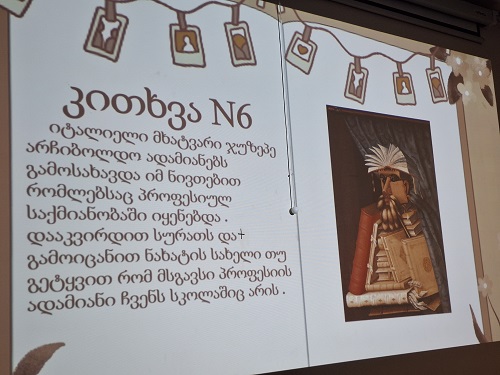 კითხვა N6
იტალიელი მხატვარი ჯუზეპე
არჩიბოლდო ადამიანებს
გამოსახავდა იმ ნივთებით
რომლებსაც პროფესიულ
საქმიანობაში იყენებდა .
დააკვირდით სურათს და
გამოიცანით ნახატის სახელი თუ
გეტყვით რომ მსგავსი პროფესიის
ადამიანი ჩვენს სკოლაშიც არის .